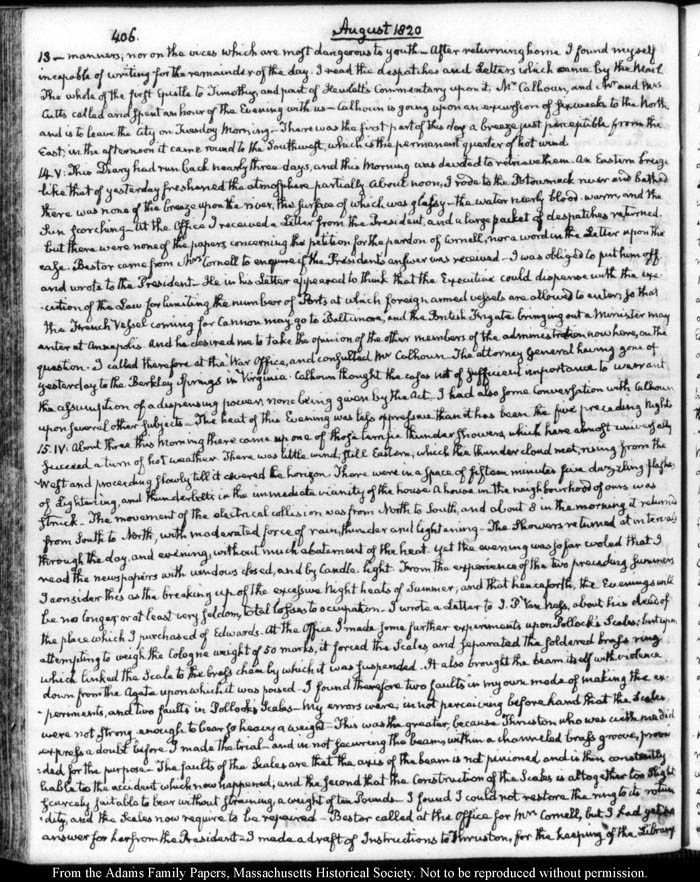 406.
August 1820
13 — manners; nor on the vices which are most dangerous to youth — After returning home I found myself
incapable of writing for the remainder of the day. I read the despatches and Letters which came by the Mail
The whole of the first Epistle to Timothy, and part of Hewlett's Commentary upon it. Mr Calhoun, and Mr and Mrs
Cutts called and spent an hour of the Evening with us — Calhoun is going upon an excursion of six weeks to the North,
and is to leave the City on Tuesday Morning — There was the first part of this day a breeze just perceptible from the
East; in the afternoon it came round to the Southwest, which is the permanent quarter of hot wind.
14. V: This Diary had run back nearly three days, and this Morning was devoted to retrieve them. An Eastern breeze
like that of yesterday freshened the atmosphere partially. About noon, I rode to the Potowmack river and bathed
There was none of the breeze upon the river, the surface of which was glassy — the water nearly blood-warm, and the
Sun scorching — At the Office I received a Letter from the President, and a large packet of despatches returned.
but there were none of the papers concerning the petition for the pardon of Cornell, nor a word in the Letter upon the
case. Bestor came from Mrs Cornell to enquire if the President's answer was received — I was obliged to put him off
and wrote to the President — He in his Letter appeared to think that the Executive could dispense with the exe-
-cution of the Law for limiting the number of Ports at which foreign armed vessels are allowed to enter; so that
the French Vessel coming for Cannon may go to Baltimore, and the British Frigate bringing out a Minister may
enter at Annapolis. And he desired me to take the opinion of the other members of the administration now here, on the
question. I called therefore at the War Office, and consulted Mr Calhoun. The Attorney General having gone of
yesterday to the Berkley Springs in Virginia. Calhoun thought the cases not of sufficient importance to warrant
the assumption of a dispensing power; none being given by the Act. I had also some Conversation with Calhoun
upon several other Subjects — The heat of this Evening was less oppressive than it has been the five preceding Nights
15. IV: About three this Morning there came up one of those terrific thunder showers, which here almost universally
succeed a turn of hot weather. There was little wind, still Eastern, which the thunder cloud met; rising from the
West and proceeding slowly till it covered the horizon. There were in a space of fifteen minutes five dazzling flashes
of Lightening, and thunderbolts in the immediate vicinity of the house. A house in the neighbourhood of ours was
struck — The movement of the electrical collision was from North to South, and about 8 in the morning it returned
from South to North, with moderated force of rain, thunder and lightening — The Showers returned at intervals
through the day, and evening, without much abatement of the heat. Yet the evening was so far cooled that I
read the newspapers with windows closed, and by Candle light. From the experience of the two preceding Summers
I consider this as the breaking up of the excessive Night heats of Summer; and that henceforth, the Evenings will
be no longer, or at least very seldom, total losses to occupation. I wrote a Letter to J. P. Van Ness, about his deed of
the place which I purchased of Edwards. At the Office I made some further experiments upon Pollock's Scales; but upon
attempting to weigh the Cologne weight of 50 marks, it forced the Scales, and separated the soldered brass ring
which linked the Scale to the brass chain by which it was suspended. It also brought the beam itself with violence
down from the Agate upon which it was poised — I found therefore two faults in my own mode of making the ex-
-periments, and two faults in Pollock's Scales — My errors were; in not perceiving beforehand that the Scales
were not strong enough to bear so heavy a weight — This was the greater, because Thruston who was with me did
express a doubt before I made the trial — and in not securing the beam, within a channeled brass groove, provi-
-ded for the purpose — The faults of the Scales are that the axis of the beam is not pinioned and is thus constantly
liable to the accident which now happened; and the second that the Construction of the Scales is altogether too slight
scarcely suitable to bear without straining, a weight of ten Pounds — I found I could not restore the ring to its rotun
-dity, and the Scales now require to be repaired — Bestor called at the Office for Mrs Cornell, but I had yet no
answer for her from the President — I made a draft of Instructions to Thruston, for the keeping of the Library
From the Adams Family Papers, Massachusetts Historical Society. Not to be reproduced without permission.